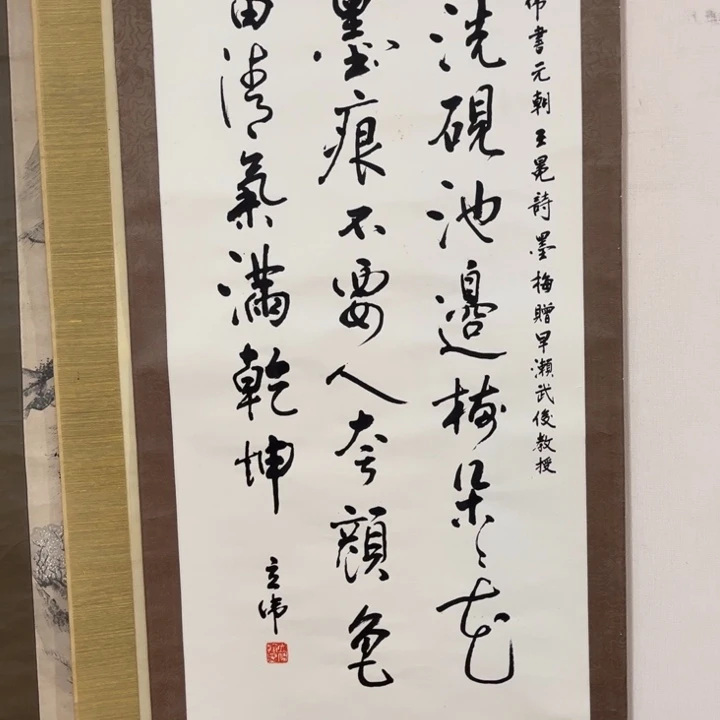 書元朝王冕詩墨梅贈早瀨武俊教授
洗硯池邊樹朵〻花
墨痕不要人夸顏色
留清氣滿乾坤
立偉